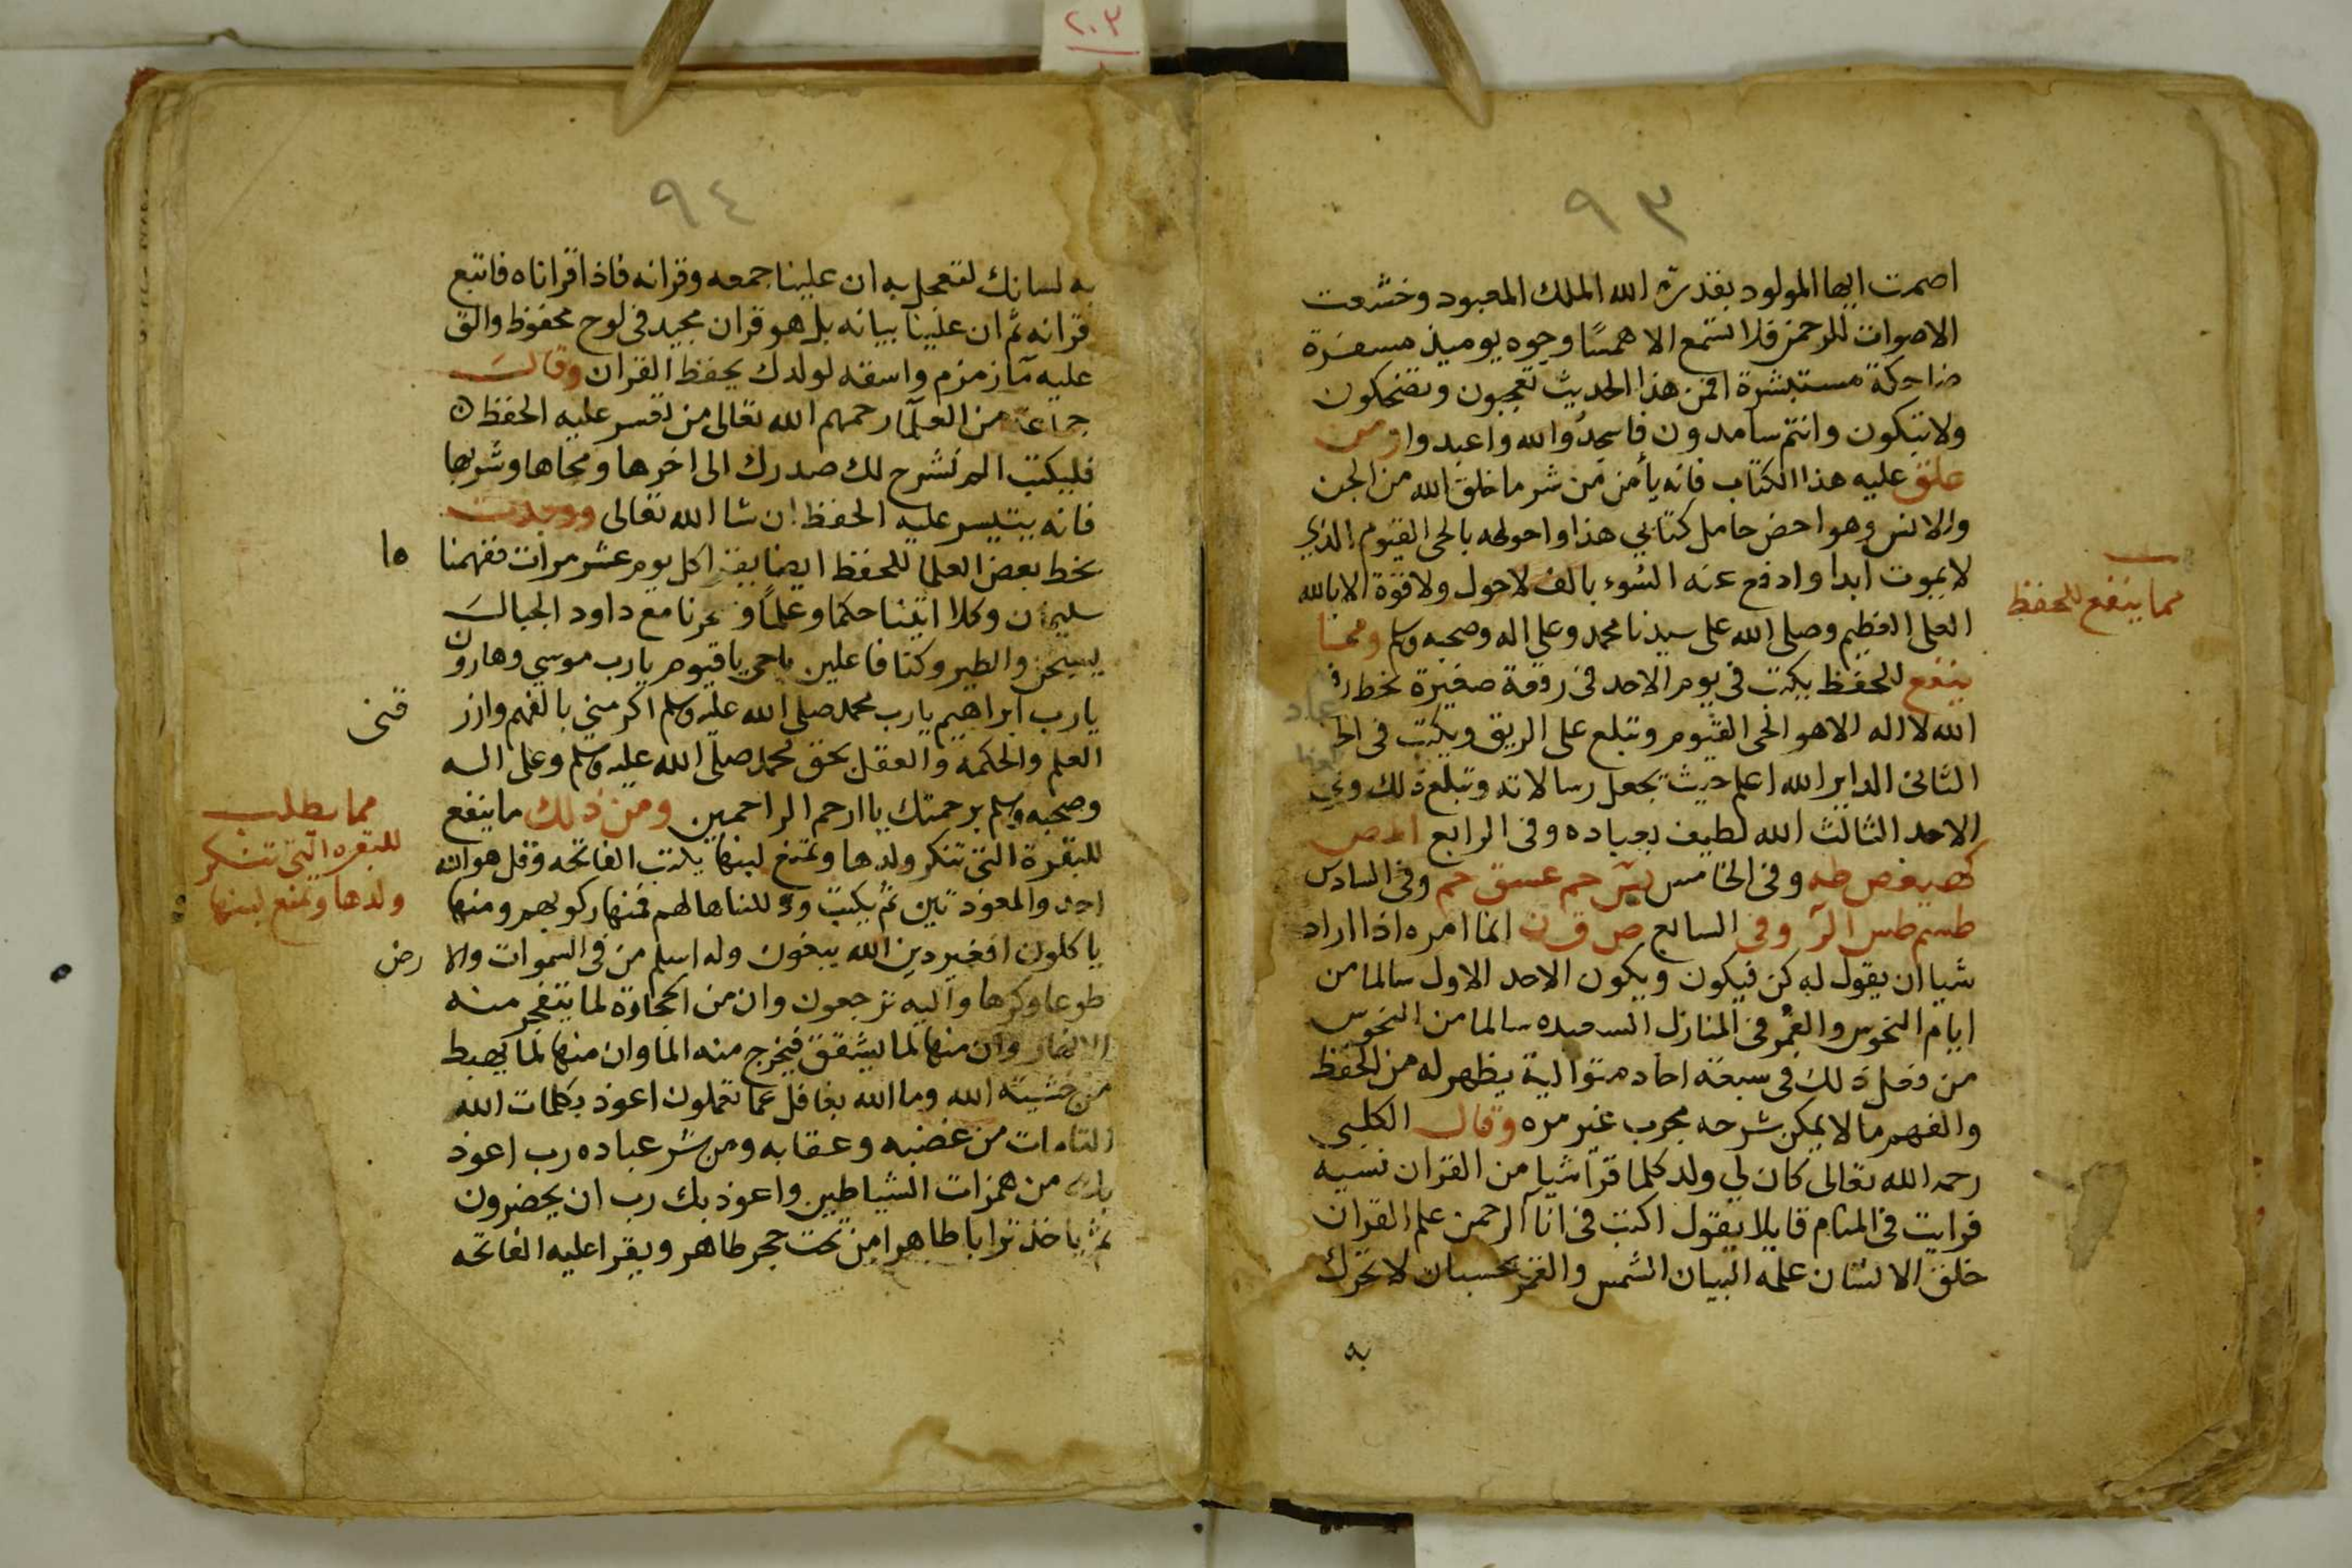 ٢٠٣
٩٣
اصمت ايها المولود بقدرة الله الملك المعبود وخشعت
الاصوات للرحمن فلا تسمع الا همسًا وجوه يوميذ مسفرة
ضاحكة مستبشرة افمن هذا الحديث تعجبون وتضحكون
ولا تبكون وانتم سامدون فاسجدوا لله واعبدوا ومن
علق عليه هذا الكتاب فانه يأمن من شر ما خلق الله من الجن
والانس وهو احض حامل كتابي هذا واحوطه بالحي القيوم الذي
لا يموت ابدا وادفع عنه السوء بالف لا حول ولا قوة الا بالله
العلى العظيم وصلى الله على سيدنا محمد وعلى اله وصحبه وسلم ومما
ينفع للحفظ يكتب في يوم الاحد في رقعة صغيرة بخط
الله لا اله الا هو الحى القيوم وتبلع على الريق ويكتب في
الثانى الداير الله اعلم حيث يجعل رسالاته وتبلع ذلك وفي
الاحد الثالث الله لطيف بعباده وفى الرابع المص
كهيعص طه وفى الخامس يس حم عسق حم وفى السادس
طسم طس الر وفى السابع ص ق ن انما امره اذا اراد
شيا ان يقول له كن فيكون ويكون الاحد الاول سالما من
ايام النحوس والقمر فى المنازل السعيده سالما من النحوس
من فعل ذلك فى سبعة احاد متوالية يظهر له من الحفظ
والفهم ما لا يمكن شرحه مجرب غير مره وقال الكلبي
رحمه الله تعالى كان لي ولد كلما قرأ شيا من القران نسيه
فرايت في المنام قايلا يقول اكتب في انا الرحمن علم القران
خلق الانسان علمه البيان الشمس والقمر بحسبان لا تحرك
به
مما ينفع للحفظ
٩٤
به لسانك لتعجل به ان علينا جمعه وقرانه فاذا قراناه فاتبع
قرانه ثم ان علينا بيانه بل هو قران مجيد في لوح محفوظ والق
عليه ماء زمزم واسقه لولدك يحفظ القران وقالت
جماعة من العلماء رحمهم الله تعالى من تعسر عليه الحفظ
فليكتب الم نشرح لك صدرك الى اخرها ومحاها وشربها
فانه يتيسر عليه الحفظ ان شا الله تعالى ووجدت
بخط بعض العلما للحفظ ايضا يقرا كل يوم عشر مرات ففهمنا ها
سليمان وكلا اتينا حكما وعلمًا وسخرنا مع داود الجبال
يسبحن والطير وكنا فاعلين ياحى ياقيوم يارب موسى وهارون
يارب ابراهيم يارب محمد صلى الله عليه وسلم اكرمني بالفهم وارز قنى
العلم والحكمة والعقل بحق محمد صلى الله عليه وسلم وعلى اله
وصحبه وسلم برحمتك يا ارحم الراحمين ومن ذلك ما ينفع
للبقرة التى تنكر ولدها وتمنع لبنها يكتب الفاتحه وقل هو الله
احد والمعوذتين ثم يكتب وذللناها لهم فمنها ركوبهم ومنها
ياكلون افغير دين الله يبغون وله اسلم من فى السموات والا رض
طوعا وكرها واليه ترجعون وان من الحجارة لما يتفجر منه
الانهار وان منها لما يشقق فيخرج منه الما وان منها لما يهبط
من خشية الله وما الله بغافل عما تعملون اعوذ بكلمات الله
التامات من غضبه وعقابه ومن شر عباده رب اعوذ
بك من همزات الشياطين واعوذ بك رب ان يحضرون
ثم ياخذ ترابا طاهرا من تحت حجر طاهر ويقرا عليه الفاتحه
مما يطلب
للبقره التى تنكر
ولدها وتمنع لبنها